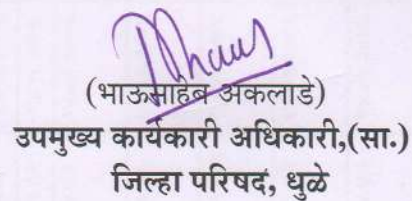 (भाऊसाहेब अकलाडे)
उपमुख्य कार्यकारी अधिकारी,(सा.)
जिल्हा परिषद, धुळे